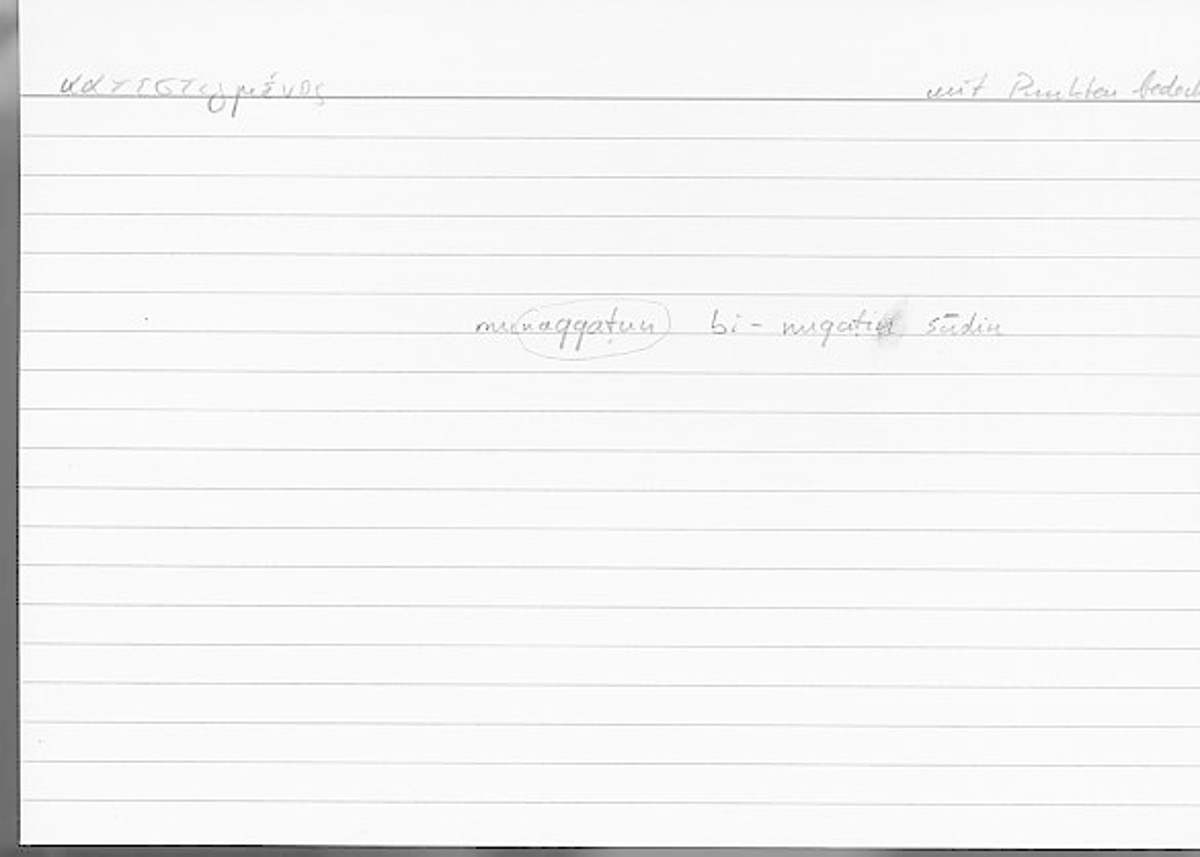 κατεστιγμένος mit Punkten bedeck
munaqqaṭun bi- nuqaṭin sūdin